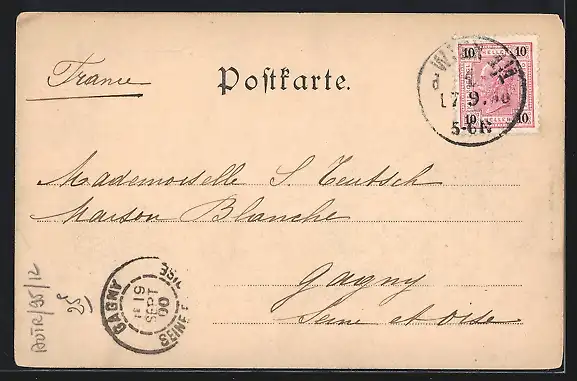 France
Postkarte.
10 10
HELLER
10 10
17 9.00
5-6N
Mademoiselle S. Teutsch
Maison Blanche
Gagny
Seine et Oise
GAGNY
19
SEPT
00
SEINE ET OISE
AÖTR/95/12
25